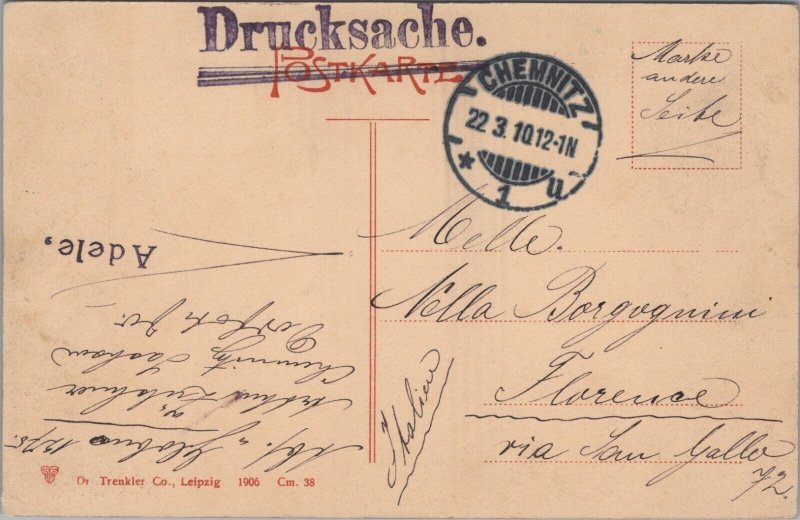 Drucksache.
POSTKARTE
CHEMNITZ
22.3.10.12-1N
* 1 u
Marke
andere
Seite
Melle.
Nella Borgognini
Florence
via San Gallo
72.
Italien
Adele,
Chemnitz Sachsen
Arthur
Abs.
Dr Trenkler Co., Leipzig 1906 Cm. 38